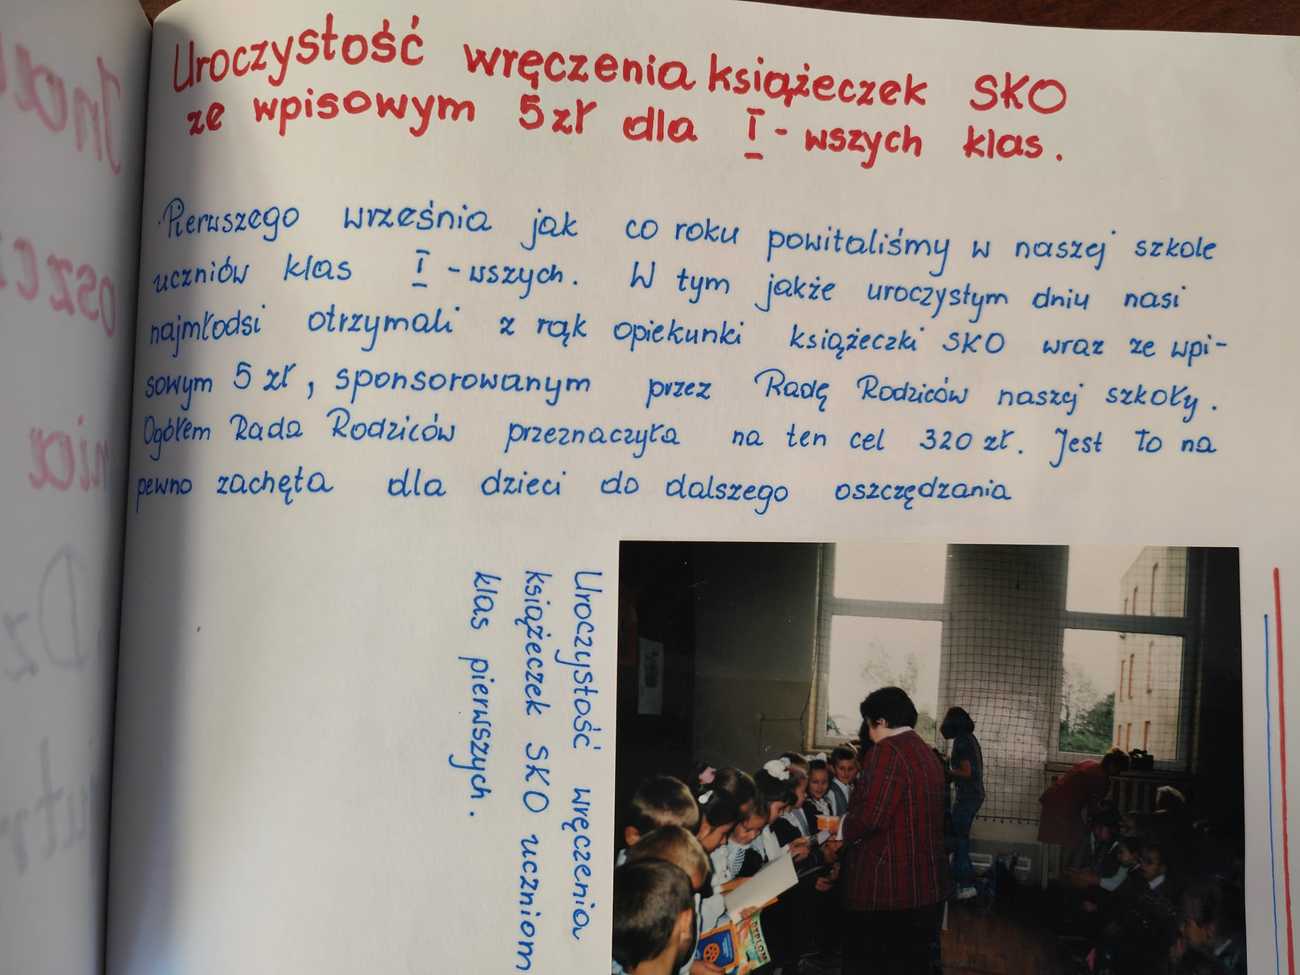 Uroczystość wręczenia książeczek SKO
ze wpisowym 5 zł dla I - wszych klas.
Pierwszego września jak co roku powitaliśmy w naszej szkole
uczniów klas I - wszych. W tym jakże uroczystym dniu nasi
najmłodsi otrzymali z rąk opiekunki książeczki SKO wraz ze wpi-
sowym 5 zł, sponsorowanym przez Radę Rodziców naszej szkoły.
Ogółem Rada Rodziców przeznaczyła na ten cel 320 zł. Jest to na
pewno zachęta dla dzieci do dalszego oszczędzania
Uroczystość wręczenia
książeczek SKO uczniom
klas pierwszych.
DYPLOM